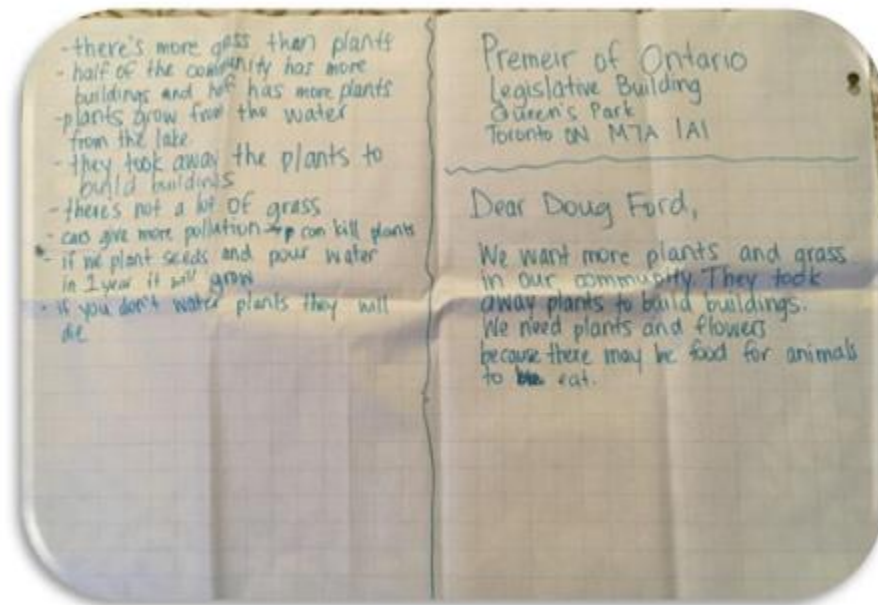 -there's more grass than plants
- half of the community has more
buildings and half has more plants
-plants grow from the water
from the lake
- they took away the plants to
build buildings
- there's not a lot of grass
- cars give more pollution → can kill plants
- if we plant seeds and pour water
in 1 year it will grow
- if you don't water plants they will
die
Premeir of Ontario
Legislative Building
Queen's Park
Toronto ON M7A 1A1
Dear Doug Ford,
We want more plants and grass
in our community. They took
away plants to build buildings.
We need plants and flowers
because there may be food for animals
to eat.